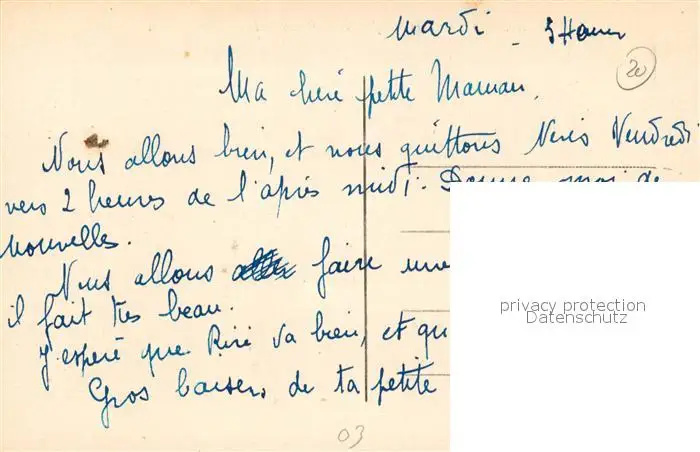 Mardi - 5 Heures
20
Ma chère petite Maman,
Nous allons bien, et nous quittons Néris Vendredi
vers 2 heures de l'après midi. Donne moi de
nouvelles.
Nous allons faire une
il fait très beau.
privacy protection
Datenschutz
J'espère que Riri va bien, et qu
Gros baisers de ta petite
03